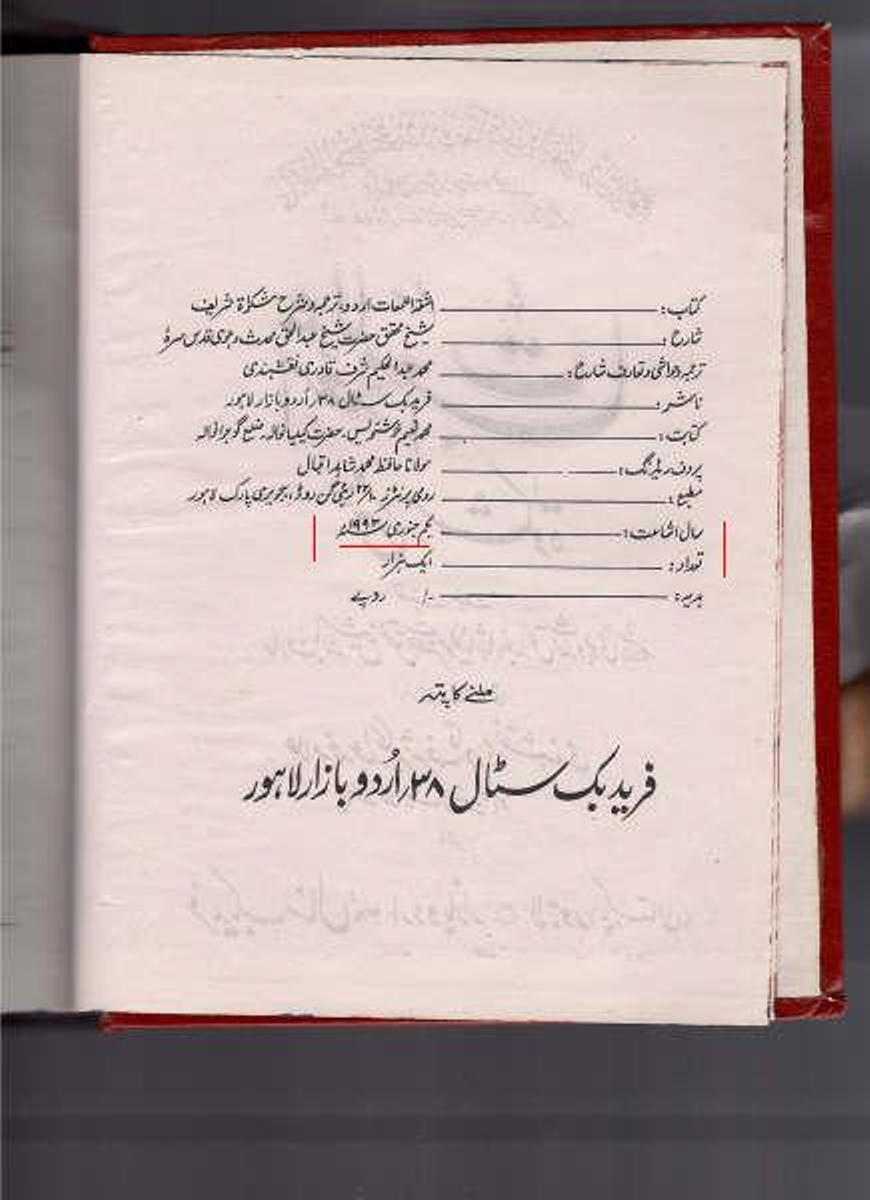 کتاب: اشعۃ اللمعات اردو، ترجمہ و شرح مشکوٰۃ شریف
شارح: شیخ محقق حضرت شیخ عبدالحق محدث دہلوی قدس سرہٗ
ترجمہ و حواشی و تعارف شارح: محمد عبدالحکیم شرف قادری نقشبندی
ناشر: فرید بک سٹال ۳۸ اُردو بازار لاہور
کتابت: محمد نعیم خوشنویس، حضرت کیلیانوالہ ضلع گوجرانوالہ
پروف ریڈنگ: مولانا حافظ محمد شاہد اقبال
مطبع: رومی پرنٹرز ریٹی گن روڈ، ہجویری پارک لاہور
سال اشاعت: یکم جنوری
تعداد: ایک ہزار
ہدیہ: /- روپے
ملنے کا پتہ
فرید بک سٹال ۳۸ اُردو بازار لاہور